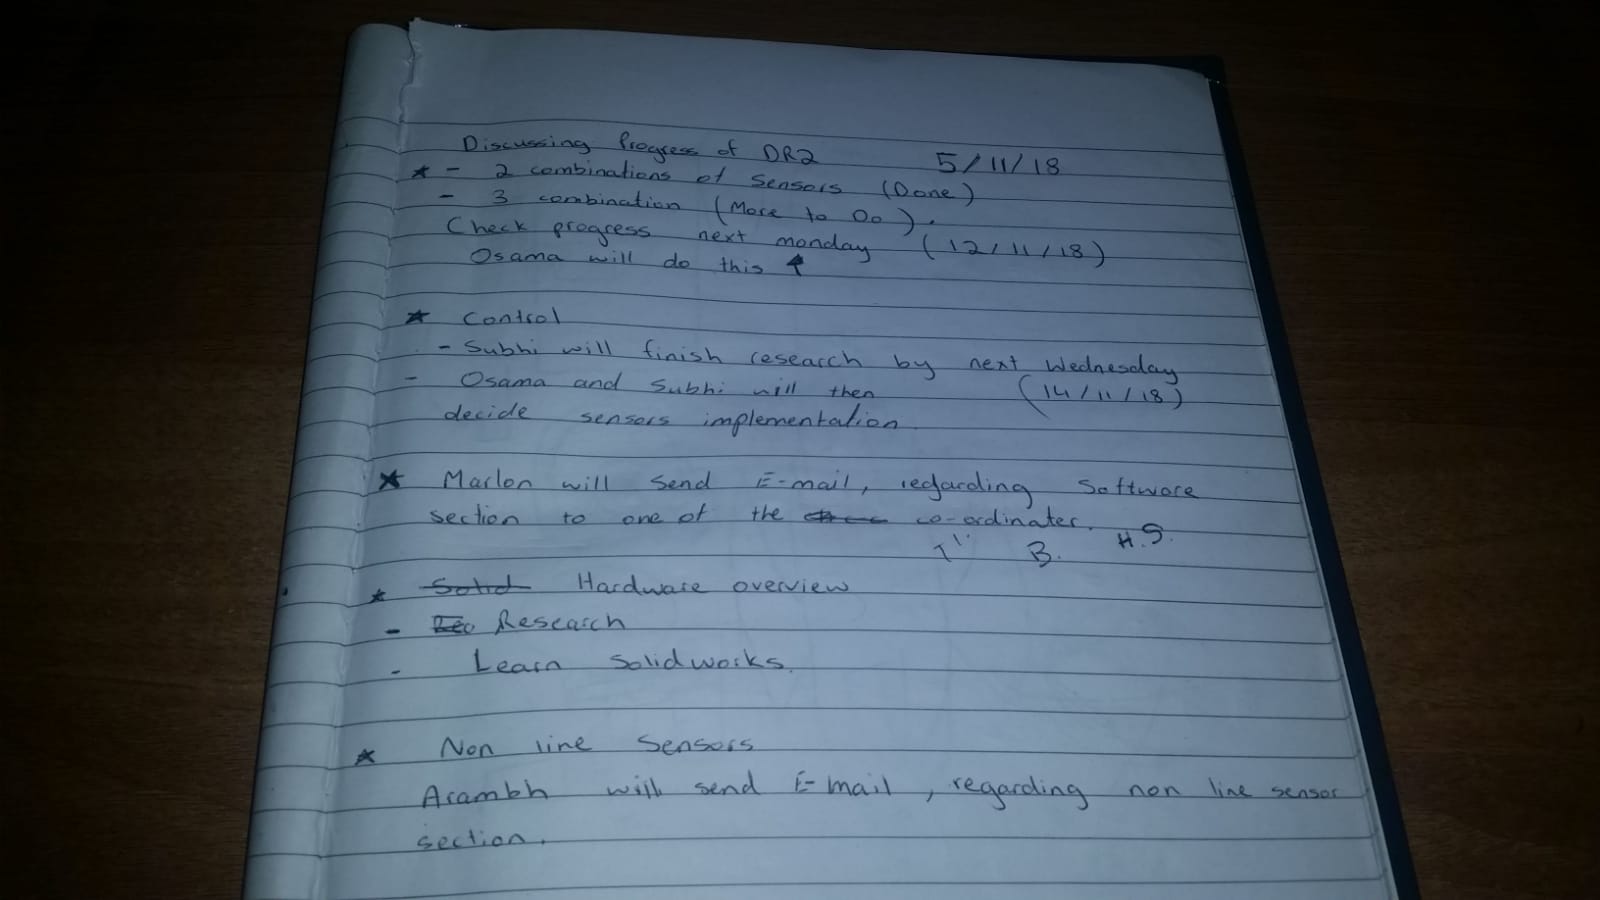 Discussing Progress of DR2 5/11/18
* - 2 combinations of Sensors (Done)
- 3 combination (More to Do).
Check progress next monday (12/11/18)
Osama will do this ↑
* Control
- Subhi will finish research by next Wednesday
- Osama and Subhi will then (14/11/18)
decide sensors implementation.
* Marlon will send E-mail, regarding Software
section to one of the co-ordinater.
B. H.S.
* Solid Hardware overview
- Research
- Learn Solidworks.
* Non line Sensors
Arambh will send E-mail, regarding non line sensor
section.